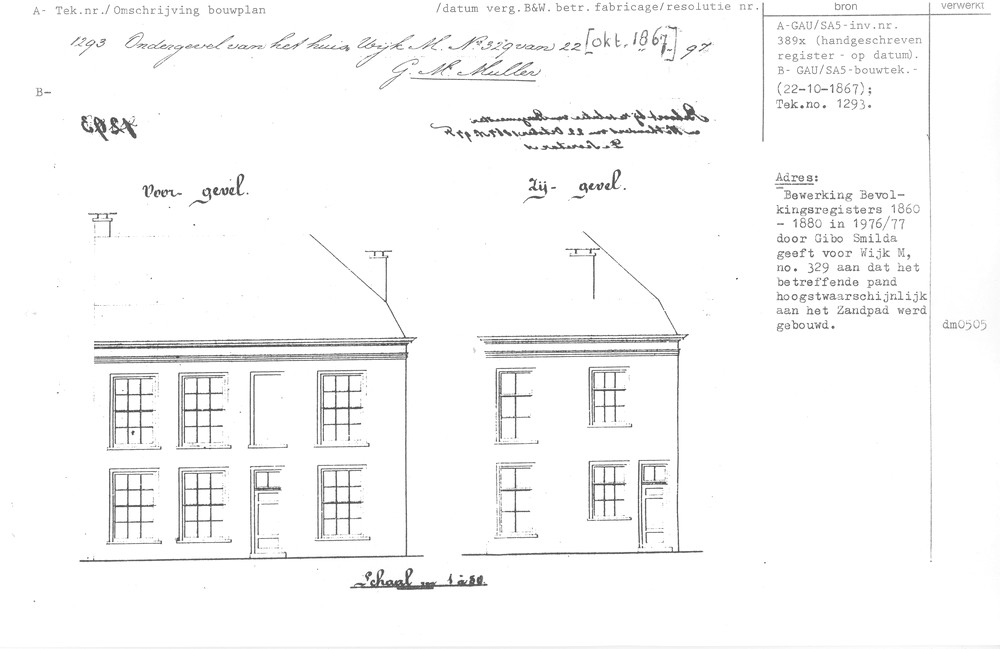 A- Tek.nr./Omschrijving bouwplan
/datum verg.B&W. betr. fabricage/resolutie nr.
bron
verwerkt
1293 Ondergevel van het huis Wijk M. No. 329 van 22 [okt. 1867] 97.
G. M. Muller
A-GAU/SA5-inv.nr.
389x (handgeschreven
register - op datum).
B- GAU/SA5-bouwtek.-
(22-10-1867);
Tek.no. 1293.
B-
1293
Voor- gevel.
Zij- gevel.
Adres:
Bewerking Bevol-
kingsregisters 1860
- 1880 in 1976/77
door Gibo Smilda
geeft voor Wijk M,
no. 329 aan dat het
betreffende pand
hoogstwaarschijnlijk
aan het Zandpad werd
gebouwd.
dm0505
Schaal 1 à 50.